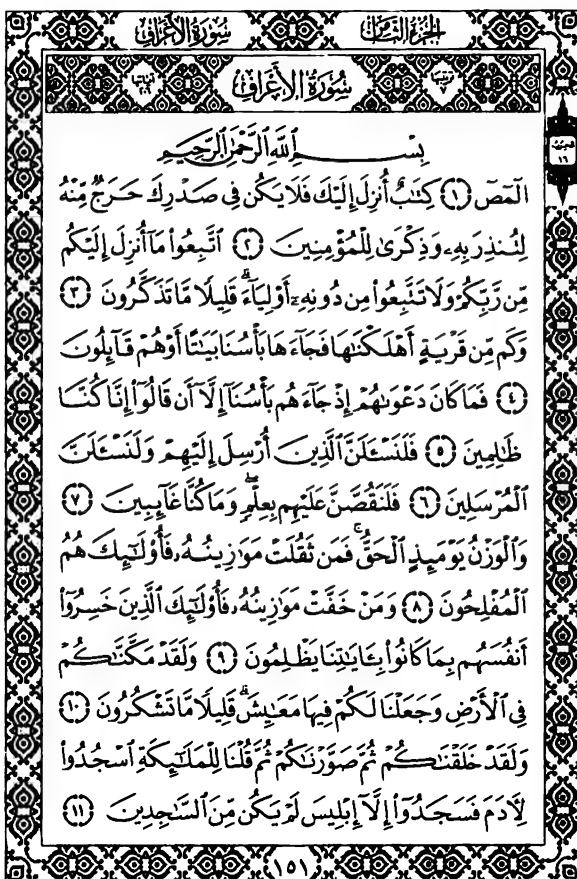 سُورَةُ الأَعْرَافِ الجُزْءُ الثَّامِنُ
سُورَةُ الأَعْرَافِ
بِسْمِ ٱللَّهِ ٱلرَّحْمَٰنِ ٱلرَّحِيمِ
الٓمٓصٓ ﴿١﴾ كِتَٰبٌ أُنزِلَ إِلَيْكَ فَلَا يَكُن فِى صَدْرِكَ حَرَجٌ مِّنْهُ
لِتُنذِرَ بِهِۦ وَذِكْرَىٰ لِلْمُؤْمِنِينَ ﴿٢﴾ ٱتَّبِعُوا۟ مَآ أُنزِلَ إِلَيْكُم
مِّن رَّبِّكُمْ وَلَا تَتَّبِعُوا۟ مِن دُونِهِۦٓ أَوْلِيَآءَ ۗ قَلِيلًا مَّا تَذَكَّرُونَ ﴿٣﴾
وَكَم مِّن قَرْيَةٍ أَهْلَكْنَٰهَا فَجَآءَهَا بَأْسُنَا بَيَٰتًا أَوْ هُمْ قَآئِلُونَ
﴿٤﴾ فَمَا كَانَ دَعْوَىٰهُمْ إِذْ جَآءَهُم بَأْسُنَآ إِلَّآ أَن قَالُوٓا۟ إِنَّا كُنَّا
ظَٰلِمِينَ ﴿٥﴾ فَلَنَسْـَٔلَنَّ ٱلَّذِينَ أُرْسِلَ إِلَيْهِمْ وَلَنَسْـَٔلَنَّ
ٱلْمُرْسَلِينَ ﴿٦﴾ فَلَنَقُصَّنَّ عَلَيْهِم بِعِلْمٍ ۖ وَمَا كُنَّا غَآئِبِينَ ﴿٧﴾
وَٱلْوَزْنُ يَوْمَئِذٍ ٱلْحَقُّ ۚ فَمَن ثَقُلَتْ مَوَٰزِينُهُۥ فَأُو۟لَٰٓئِكَ هُمُ
ٱلْمُفْلِحُونَ ﴿٨﴾ وَمَنْ خَفَّتْ مَوَٰزِينُهُۥ فَأُو۟لَٰٓئِكَ ٱلَّذِينَ خَسِرُوٓا۟
أَنفُسَهُم بِمَا كَانُوا۟ بِـَٔايَٰتِنَا يَظْلِمُونَ ﴿٩﴾ وَلَقَدْ مَكَّنَّٰكُمْ
فِى ٱلْأَرْضِ وَجَعَلْنَا لَكُمْ فِيهَا مَعَٰيِشَ ۗ قَلِيلًا مَّا تَشْكُرُونَ ﴿١٠﴾
وَلَقَدْ خَلَقْنَٰكُمْ ثُمَّ صَوَّرْنَٰكُمْ ثُمَّ قُلْنَا لِلْمَلَٰٓئِكَةِ ٱسْجُدُوا۟
لِـَٔادَمَ فَسَجَدُوٓا۟ إِلَّآ إِبْلِيسَ لَمْ يَكُن مِّنَ ٱلسَّٰجِدِينَ ﴿١١﴾
١٥١